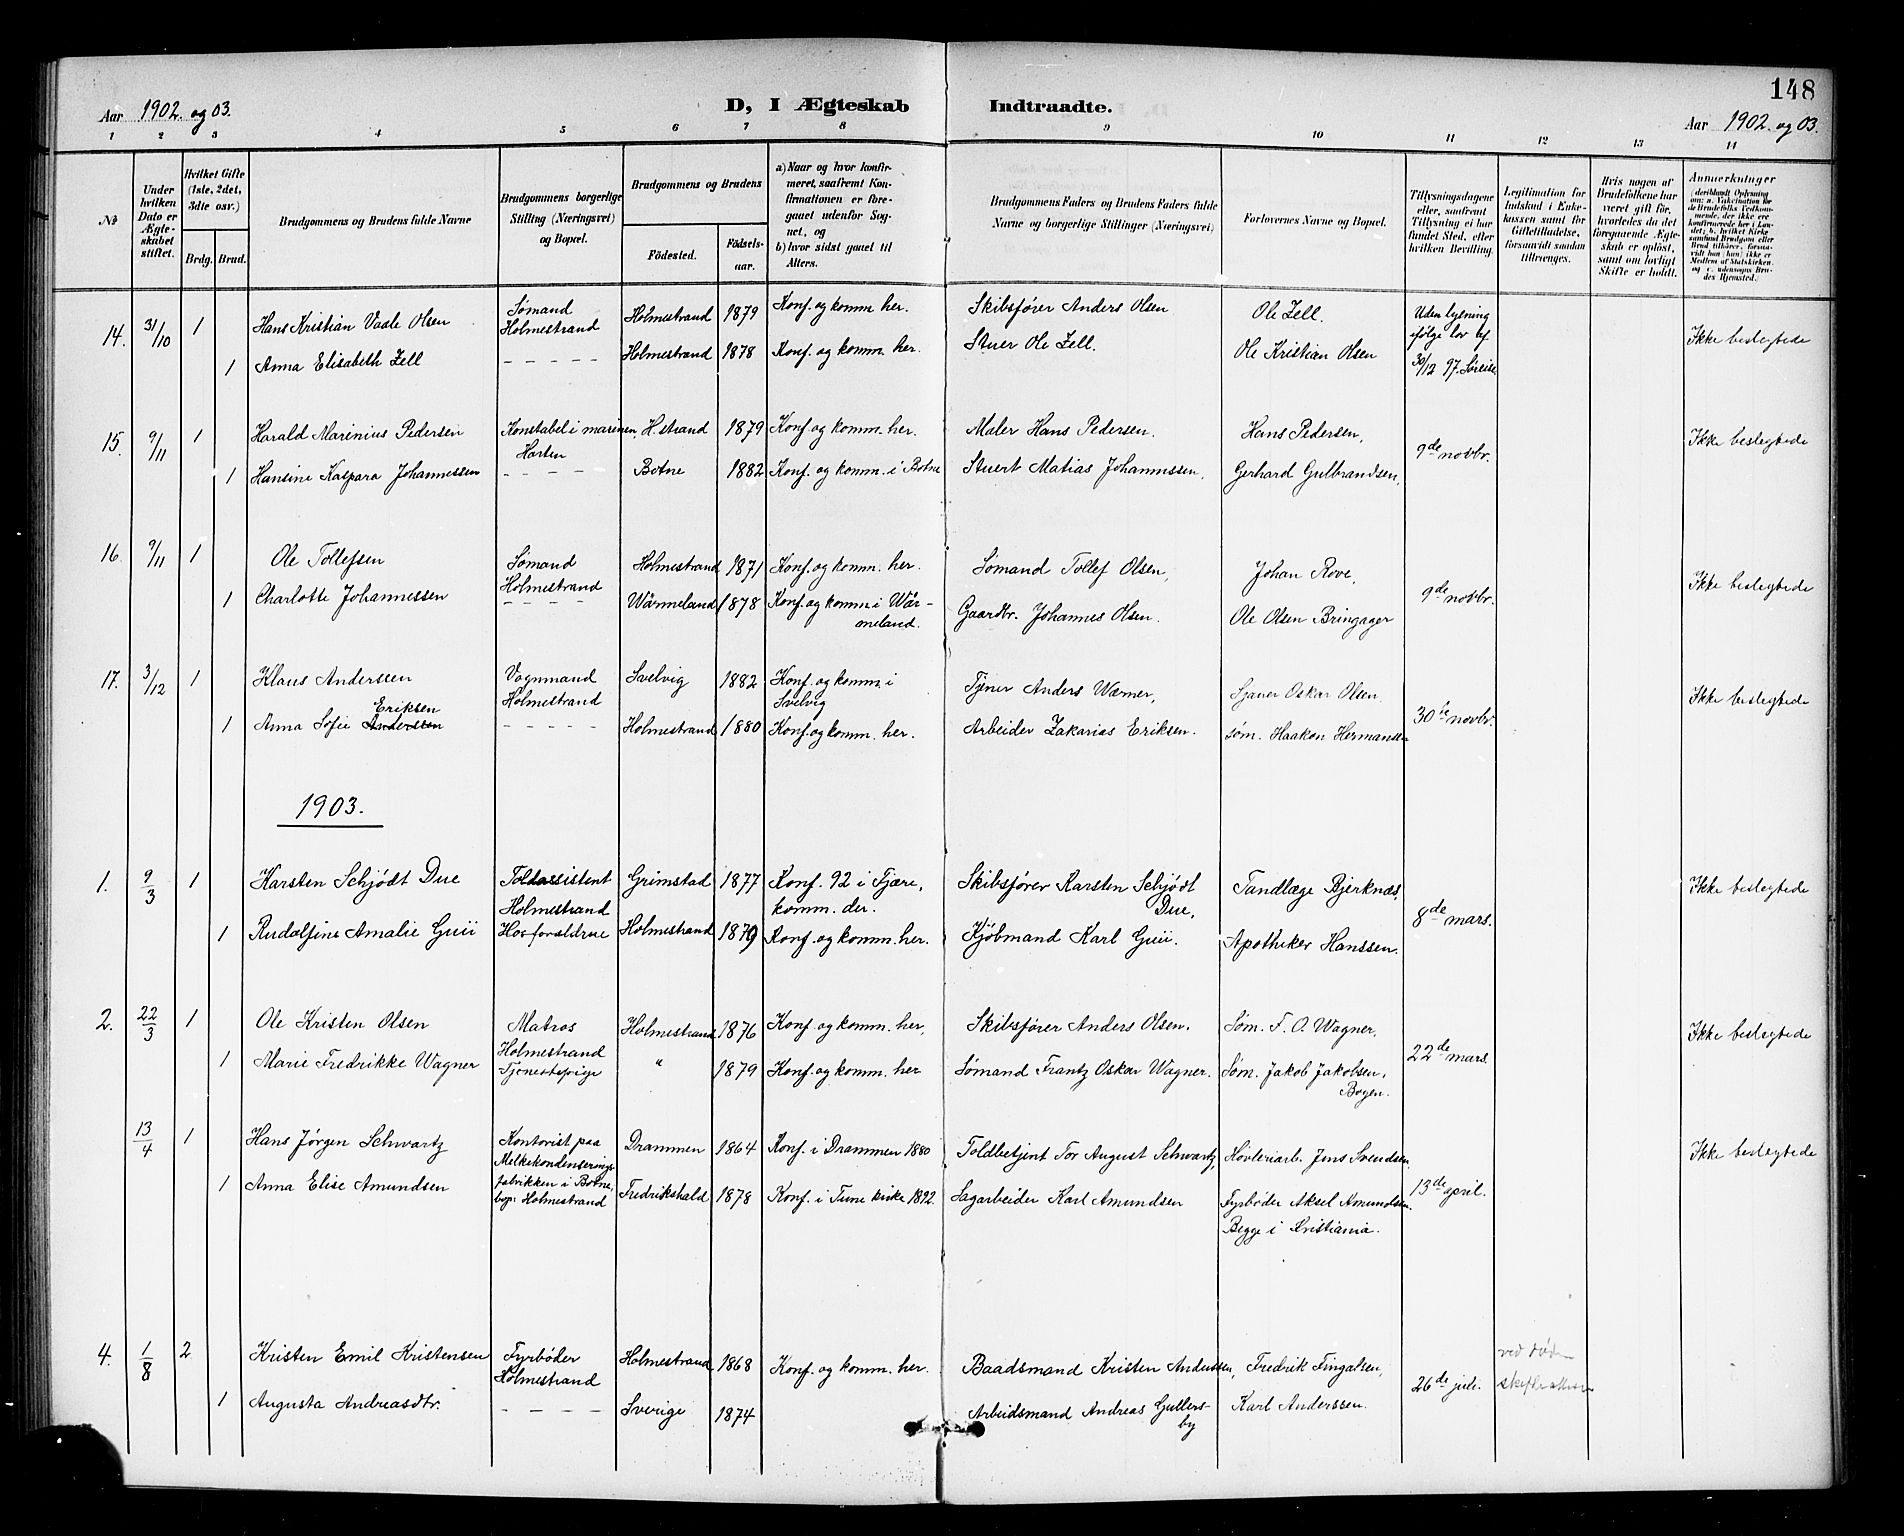 148
Aar 1902. og 03.
D, I Ægteskab Indtraadte.
Aar 1902. og 03.
1 2 3 4 5 6 7 8 9 10 11 12 13 14
No
Under hvilken Dato er Ægteskabet stiftet.
Hvilket Gifte (1ste, 2det, 3die osv.)
Brdg. Brud.
Brudgommens og Brudens fulde Navne
Brudgommens borgerlige Stilling (Næringsvei) og Bopæl.
Brudgommens og Brudens
Födested.
Födselsaar.
a) Naar og hvor konfirmeret, saafremt Konfirmationen er foregaaet udenfor Sognet, og
b) hvor sidst gaaet til Alters.
Brudgommens Faders og Brudens Faders fulde Navne og borgerlige Stillinger (Næringsvei)
Forlovernes Navne og Bopæl.
Tillysningsdagene eller, saafremt Tillysning ei har fundet Sted, efter hvilken Bevilling.
Legitimation for Indskud i Enkekassen samt for Giftetilladelse, forsaavidt saadan tiltrænges.
Hvis nogen af Brudefolkene har været gift för, hvorledes da det foregaaende Ægteskab er oplöst, samt om lovligt Skifte er holdt.
Anmærkninger
(deriblandt Oplysning om: a. Vakcination for de Brudefolks Vedkommende, der ikke ere konfirmerede her i Landet; b. hvilket Kirkesamfund Brudgom eller Brud tilhörer, forsaavidt han (hun) ikke er Medlem af Statskirken, og c. udensogns Brudes Hjemsted.
14. 31/10 1 Hans Kristian Vaale Olsen Sømand Holmestrand Holmestrand 1879 Konf. og komm. her. Skibsfører Anders Olsen Ole Zell. Uden lysning ifølge lov af 30/12 97. Søreise. Ikke beslegtede
1 Anna Elisabeth Zell – – – – – Holmestrand 1878 Konf. og komm. her. Stuer Ole Zell. Ole Kristian Olsen
15. 9/11 1 Harald Marinius Pedersen Konstabel i marinen, Horten H.strand 1879 Konf. og komm. her. Maler Hans Pedersen. Hans Pedersen, 9de novbr. Ikke beslegtede
1 Hansine Kaspara Johannessen – – – – – Botne 1882 Konf. og komm. i Botne Stuert Matias Johannessen, Gerhard Gulbrandsen,
16. 9/11 1 Ole Tollefsen Sømand Holmestrand Holmestrand 1871 Konf. og komm. her. Sømand Tollef Olsen, Johan Rove, 9de novbr. Ikke beslegtede
1 Charlotte Johannessen – – – – – Wärmeland 1878 Konf. og komm. i Wärmeland. Gaardbr. Johannes Olsen. Ole Olsen Bringager
17. 3/12 1 Klaus Anderssen Vognmand Holmestrand Svelvig 1882 Konf. og komm. i Svelvig Tjener Anders Wærner, Sjauer Oskar Olsen 30te novbr. Ikke beslegtede
1 Anna Sofie Anderssen Eriksen – – – – – Holmestrand 1880 Konf. og komm. her. Arbeider Zakarias Eriksen. søm. Haakon Hermansen
1903.
1. 9/3 1 Karsten Schjödt Due Toldassistent Holmestrand Grimstad 1877 Konf. 92 i Fjære, komm. der. Skibsfører Karsten Schjödt Due, Tandlæge Bjerknæs, 8de mars. Ikke beslegtede
1 Rudolfine Amalie Guii Hos forældrene Holmestrand 1879 Konf. og komm. her. Kjøbmand Karl Guii. Apotheker Hanssen.
2. 22/3 1 Ole Kristen Olsen Matros Holmestrand Holmestrand 1876 Konf. og komm. her, Skibsfører Anders Olsen. Søm. F. O. Wagner, 22de mars Ikke beslegtede
1 Marie Fredrikke Wagner Tjenestepige " 1879 Konf. og komm. her Sømand Frantz Oskar Wagner. Søm. Jakob Jakobsen, Bogen.
13/4 1 Hans Jørgen Schwartz Kontorist paa Melkekondenseringsfabrikken i Botne, bop: Holmestrand Drammen 1864 Konf. i Drammen 1880 Toldbetjent Tor August Schwartz, Høvleriarb. Jens Svendsen 13de april. Ikke beslegtede
1 Anna Elise Amundsen Fredrikshald 1878 Konf. i Tune kirke 1892. Sagarbeider Karl Amundsen Fyrbøder Aksel Amundsen. Begge i Kristiania.
4. 1/8 2 Kristen Emil Kristensen Fyrbøder Holmestrand Holmestrand 1868 Konf. og komm. her. Baadsmand Kristen Anderssen, Fredrik Fingalsen, 26de juli. ved død
1 Augusta Andreasdtr. – – – – – Sverige 1874 Arbeidsmand Andreas Gullersby Karl Anderssen.